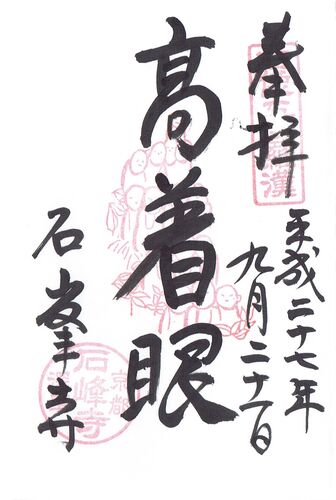 奉拝
平成二十七年
九月二十一日
高着眼
石峯寺
京都
石峰寺